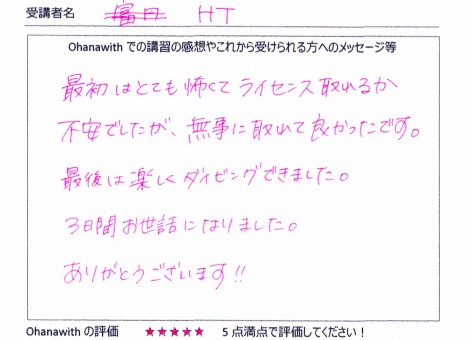 受講者名 HT
Ohanawith での講習の感想やこれから受けられる方へのメッセージ等
最初はとても怖くてライセンス取れるか
不安でしたが、無事に取れて良かったです。
最後は楽しくダイビングできました。
3日間お世話になりました。
ありがとうございます!!
Ohanawith の評価 ★★★★★ 5点満点で評価してください！